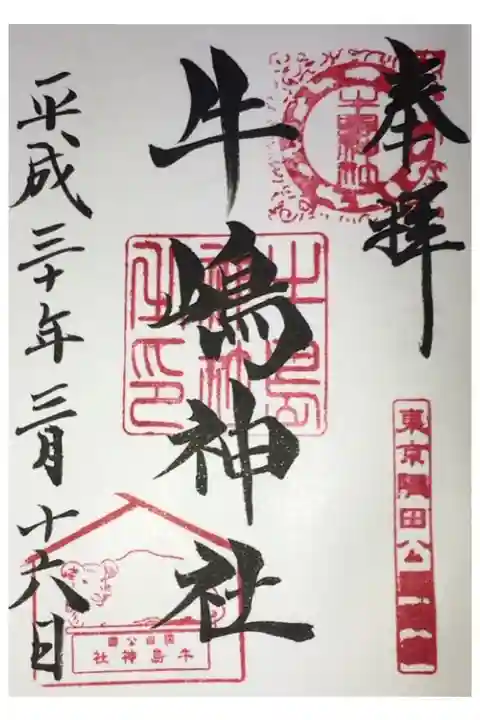 奉拝
東京隅田公
牛嶋神社
牛島神社印
隅田公園
牛島神社
平成三十年三月十六日